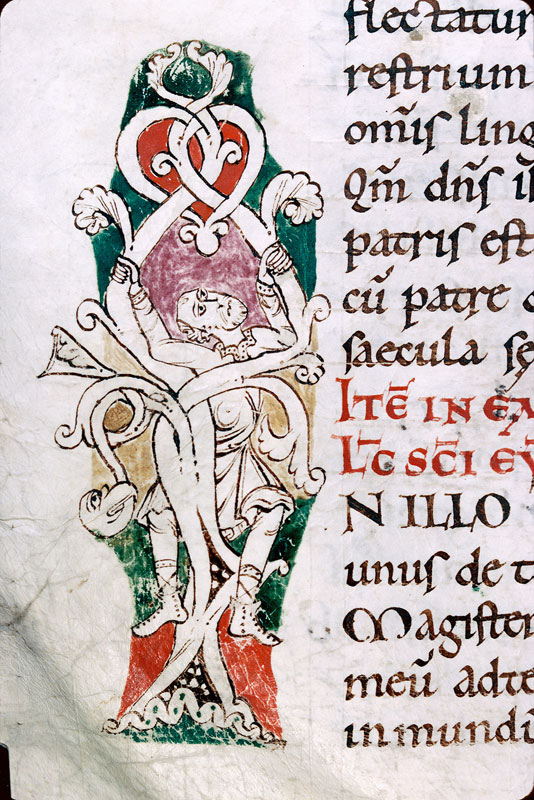 flectatur
restrium
om̄is ling
Qm̄ dn̄s ih
patris est
cū patre
saecula sę
ITĒ IN EA
L̄C SC̄I EV
N ILLO
unus de t
Magister
meū adte
in mundū